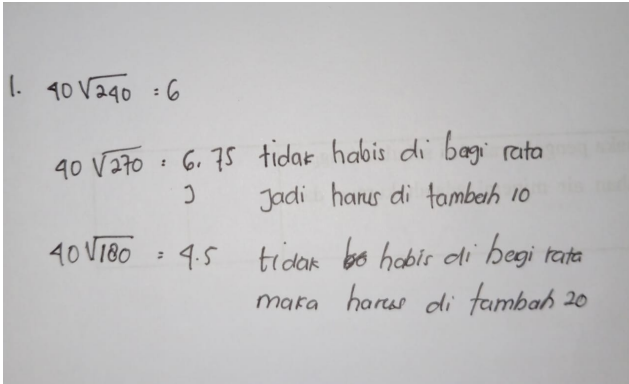 1. 40 √240 = 6
40 √270 = 6.75 tidak habis di bagi rata
Jadi harus di tambah 10
40 √180 = 4.5 tidak habis di bagi rata
maka harus di tambah 20